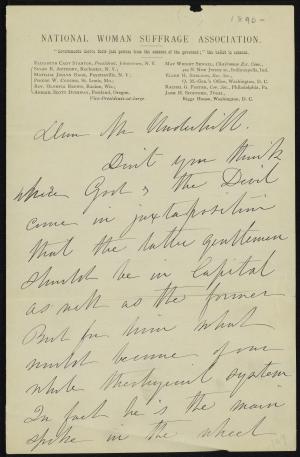 1890-
NATIONAL WOMAN SUFFRAGE ASSOCIATION.
"Governments derive their just powers from the consent of the governed;" the ballot is consent.
ELIZABETH CADY STANTON, President, Johnstown, N. Y.
SUSAN B. ANTHONY, Rochester, N. Y.;
MATILDA JOSLYN GAGE, Fayetteville, N. Y.;
PHOEBE W. COUZINS, St. Louis, Mo.;
REV. OLYMPIA BROWN, Racine, Wis.;
ABIGAIL SCOTT DUNIWAY, Portland, Oregon.
Vice-Presidents-at-large.
MAY WRIGHT SEWALL, Chairman Ex. Com.,
New Jersey St., Indianapolis, Ind.
ELLEN H. SHELDON, Rec. Sec.,
Q. M.-Gen.'s Office, Washington, D. C.
RACHEL G. FOSTER, Cor. Sec., Philadelphia, Pa.
JANE H. SPOFFORD, Treas.,
Riggs House, Washington, D. C.
Dear Mr Underhill.
Don't you think
where God & the Devil
come in juxtaposition
that the latter gentleman
should be in Capital
as well as the former
But for him what
would become of our
whole theological system
In fact he is the main
spoke in the wheel